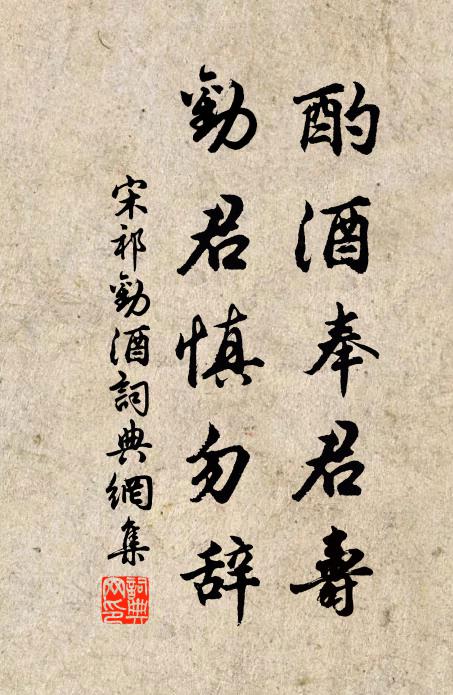 酌酒奉君壽
勸君慎勿辞
宋祁勸酒詞典網集
詞典網印